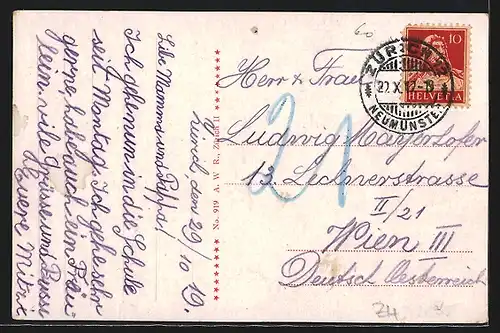 Zürich, den 29/10 19.
Liebe Mamma und Pappa!
Ich gehe nun in die Schule
seit Montag. Ich gehe sehr
gerne, habe auch ein Fräu-
lein. viele grüsse und Bussi
Euere Mitzi
No. 919 A. W. R., Zürich II
Herr & Frau
Ludwig Mayerhofer
13. Lechnerstrasse
II/21
Wien III
Deutsch Oesterreich
21
ZÜRICH
NEUMÜNSTER
10
HELVETIA
60